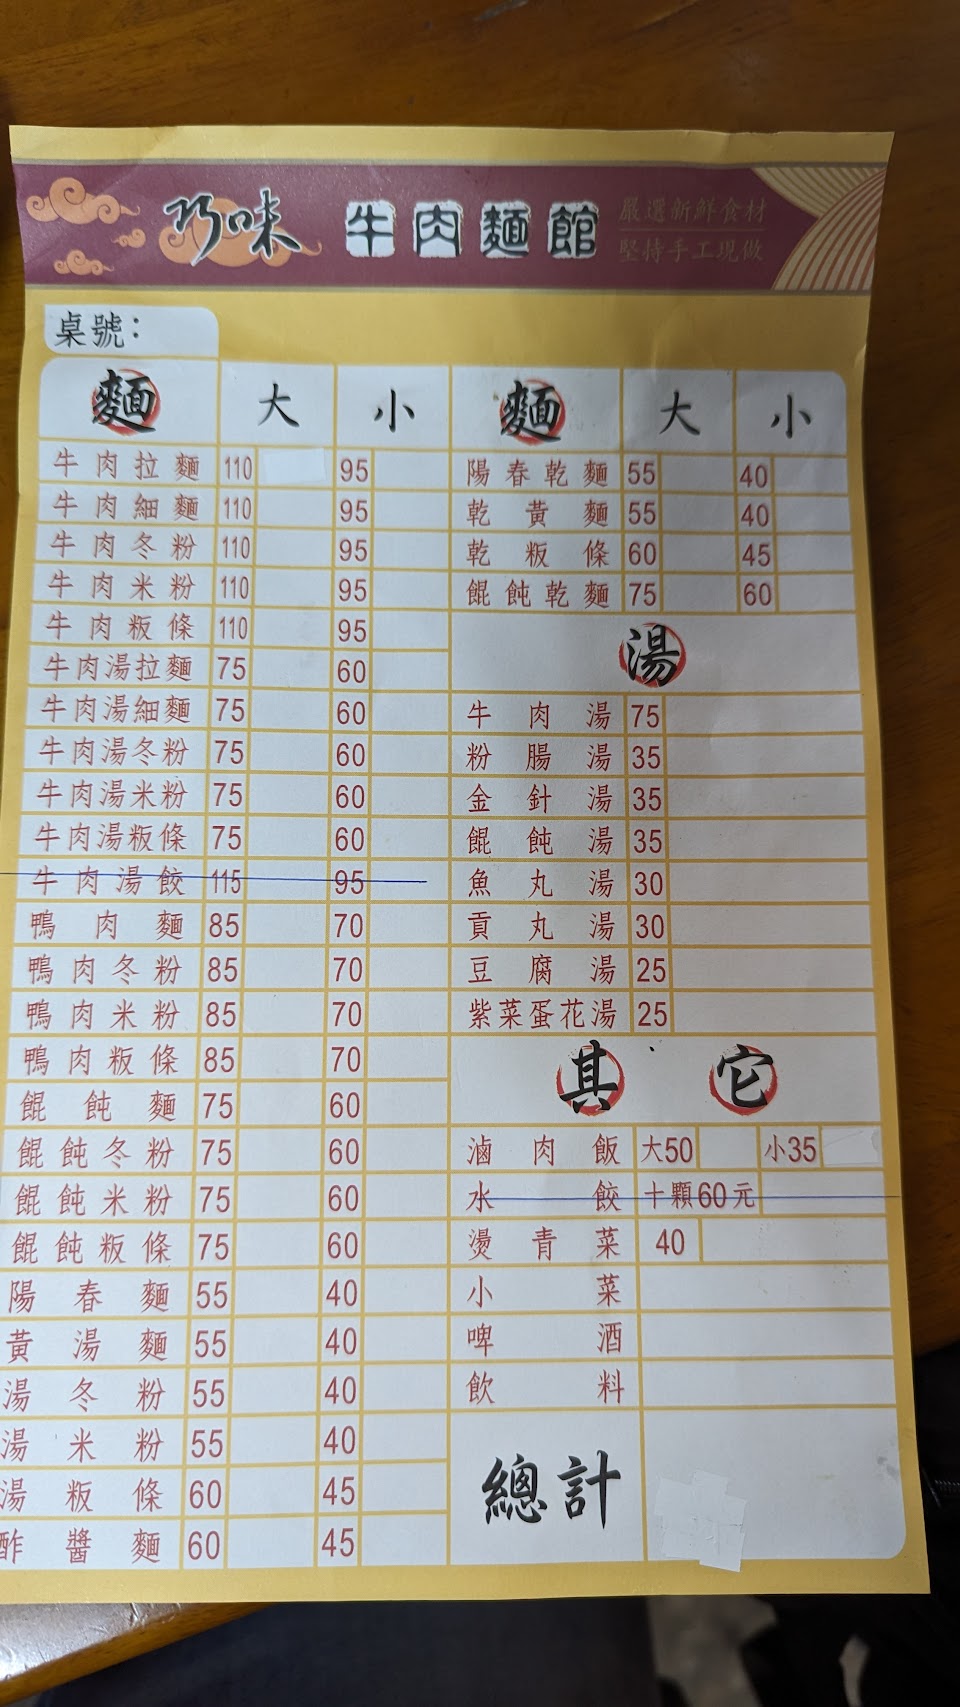 巧味 牛肉麵館 嚴選新鮮食材
堅持手工現做
桌號：
麵 大 小
牛肉拉麵 110 95
牛肉細麵 110 95
牛肉冬粉 110 95
牛肉米粉 110 95
牛肉粄條 110 95
牛肉湯拉麵 75 60
牛肉湯細麵 75 60
牛肉湯冬粉 75 60
牛肉湯米粉 75 60
牛肉湯粄條 75 60
牛肉湯餃 115 95
鴨肉麵 85 70
鴨肉冬粉 85 70
鴨肉米粉 85 70
鴨肉粄條 85 70
餛飩麵 75 60
餛飩冬粉 75 60
餛飩米粉 75 60
餛飩粄條 75 60
陽春麵 55 40
黃湯麵 55 40
湯冬粉 55 40
湯米粉 55 40
湯粄條 60 45
酢醬麵 60 45
麵 大 小
陽春乾麵 55 40
乾黃麵 55 40
乾粄條 60 45
餛飩乾麵 75 60
湯
牛肉湯 75
粉腸湯 35
金針湯 35
餛飩湯 35
魚丸湯 30
貢丸湯 30
豆腐湯 25
紫菜蛋花湯 25
其它
滷肉飯 大50 小35
水餃 十顆60元
燙青菜 40
小菜
啤酒
飲料
總計